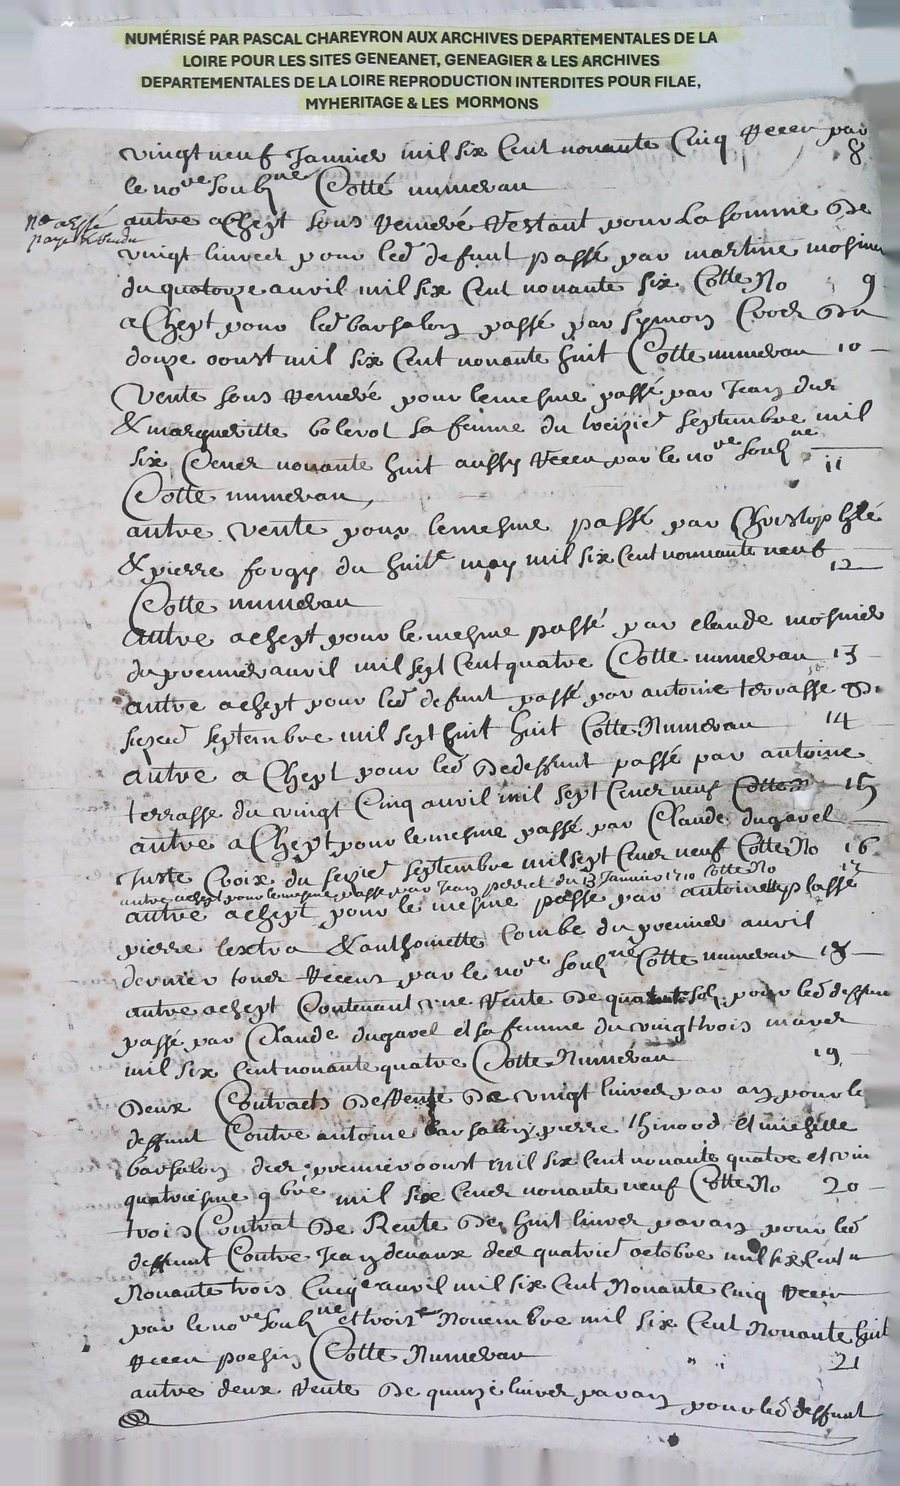 NUMÉRISÉ PAR PASCAL CHAREYRON AUX ARCHIVES DEPARTEMENTALES DE LA
LOIRE POUR LES SITES GENEANET, GENEAGIER & LES ARCHIVES
DEPARTEMENTALES DE LA LOIRE REPRODUCTION INTERDITES POUR FILAE,
MYHERITAGE & LES MORMONS
vingt neuf Janvier mil six Cent nonante Cinq receu par
le no.re soub.né Cotté numeran 8
autre achept sous remeré restant pour la somme de
vingt livres pour led defunt passé par martine mosnier
du quatorze avril mil six Cent nonante six Cotte No 9
achept pour led barsalon passé par symon du
douze aoust mil six Cent nonante huit Cotte numeran 10
Vente sous remeré pour le mesme passé par Jean
& margueritte sa femme du septembre mil
six Cens nonante huit aussy receu par le no.re soub.né
Cotte numeran 11
autre vente pour le mesme passé par Christophle
& pierre forgy du huit.e may mil six Cent nonnante neuf
Cotte numeran 12
autre achept pour le mesme passé par claude mosnier
du premier avril mil sept Cent quatre Cotte numeran 13
autre achept pour led defunt passé par antoine terrasse du
septembre mil sept huit Cotte Numeran 14
autre achept pour led deffunt passé par antoine
terrasse du vingt Cinq avril mil sept Cens neuf Cotte N 15
autre achept pour le mesme passé par Claude dugarel
Juste Croix du septembre mil sept Cens neuf Cotte No 16
autre achept pour le mesme passé par Jean perret du 13 Janvier 1710 Cotte No 17
autre achept pour le mesme passé par antoine
pierre lextra & anthoinette Combe du premier avril
dernier receus par le no.re soub.né Cotte numeran 18
autre achept Contenant une Rente de sols pour led deffunt
passé par Claude dugarel et sa femme du vingt trois mars
mil six Cent nonante quatre Cotte Numeran 19
deux Contracts de Rente de vingt livres par an pour le
deffunt Contre antoine barsalon pierre et
barsalon des premier aoust mil six Cent nonante quatre et
quatriesme 9bre mil six Cens nonante neuf Cotte No 20
trois Contrat de Rente de huit livres par an pour led
deffunt Contre Jean devaux des octobre mil six Cent
Nonante trois avril mil six Cent Nonante Cinq receu
par le no.re soub.né et Novembre mil six Cent Nonante huit
receu Cotte Numeran 21
autre deux Rente de quinze livres par an pour led deffunt